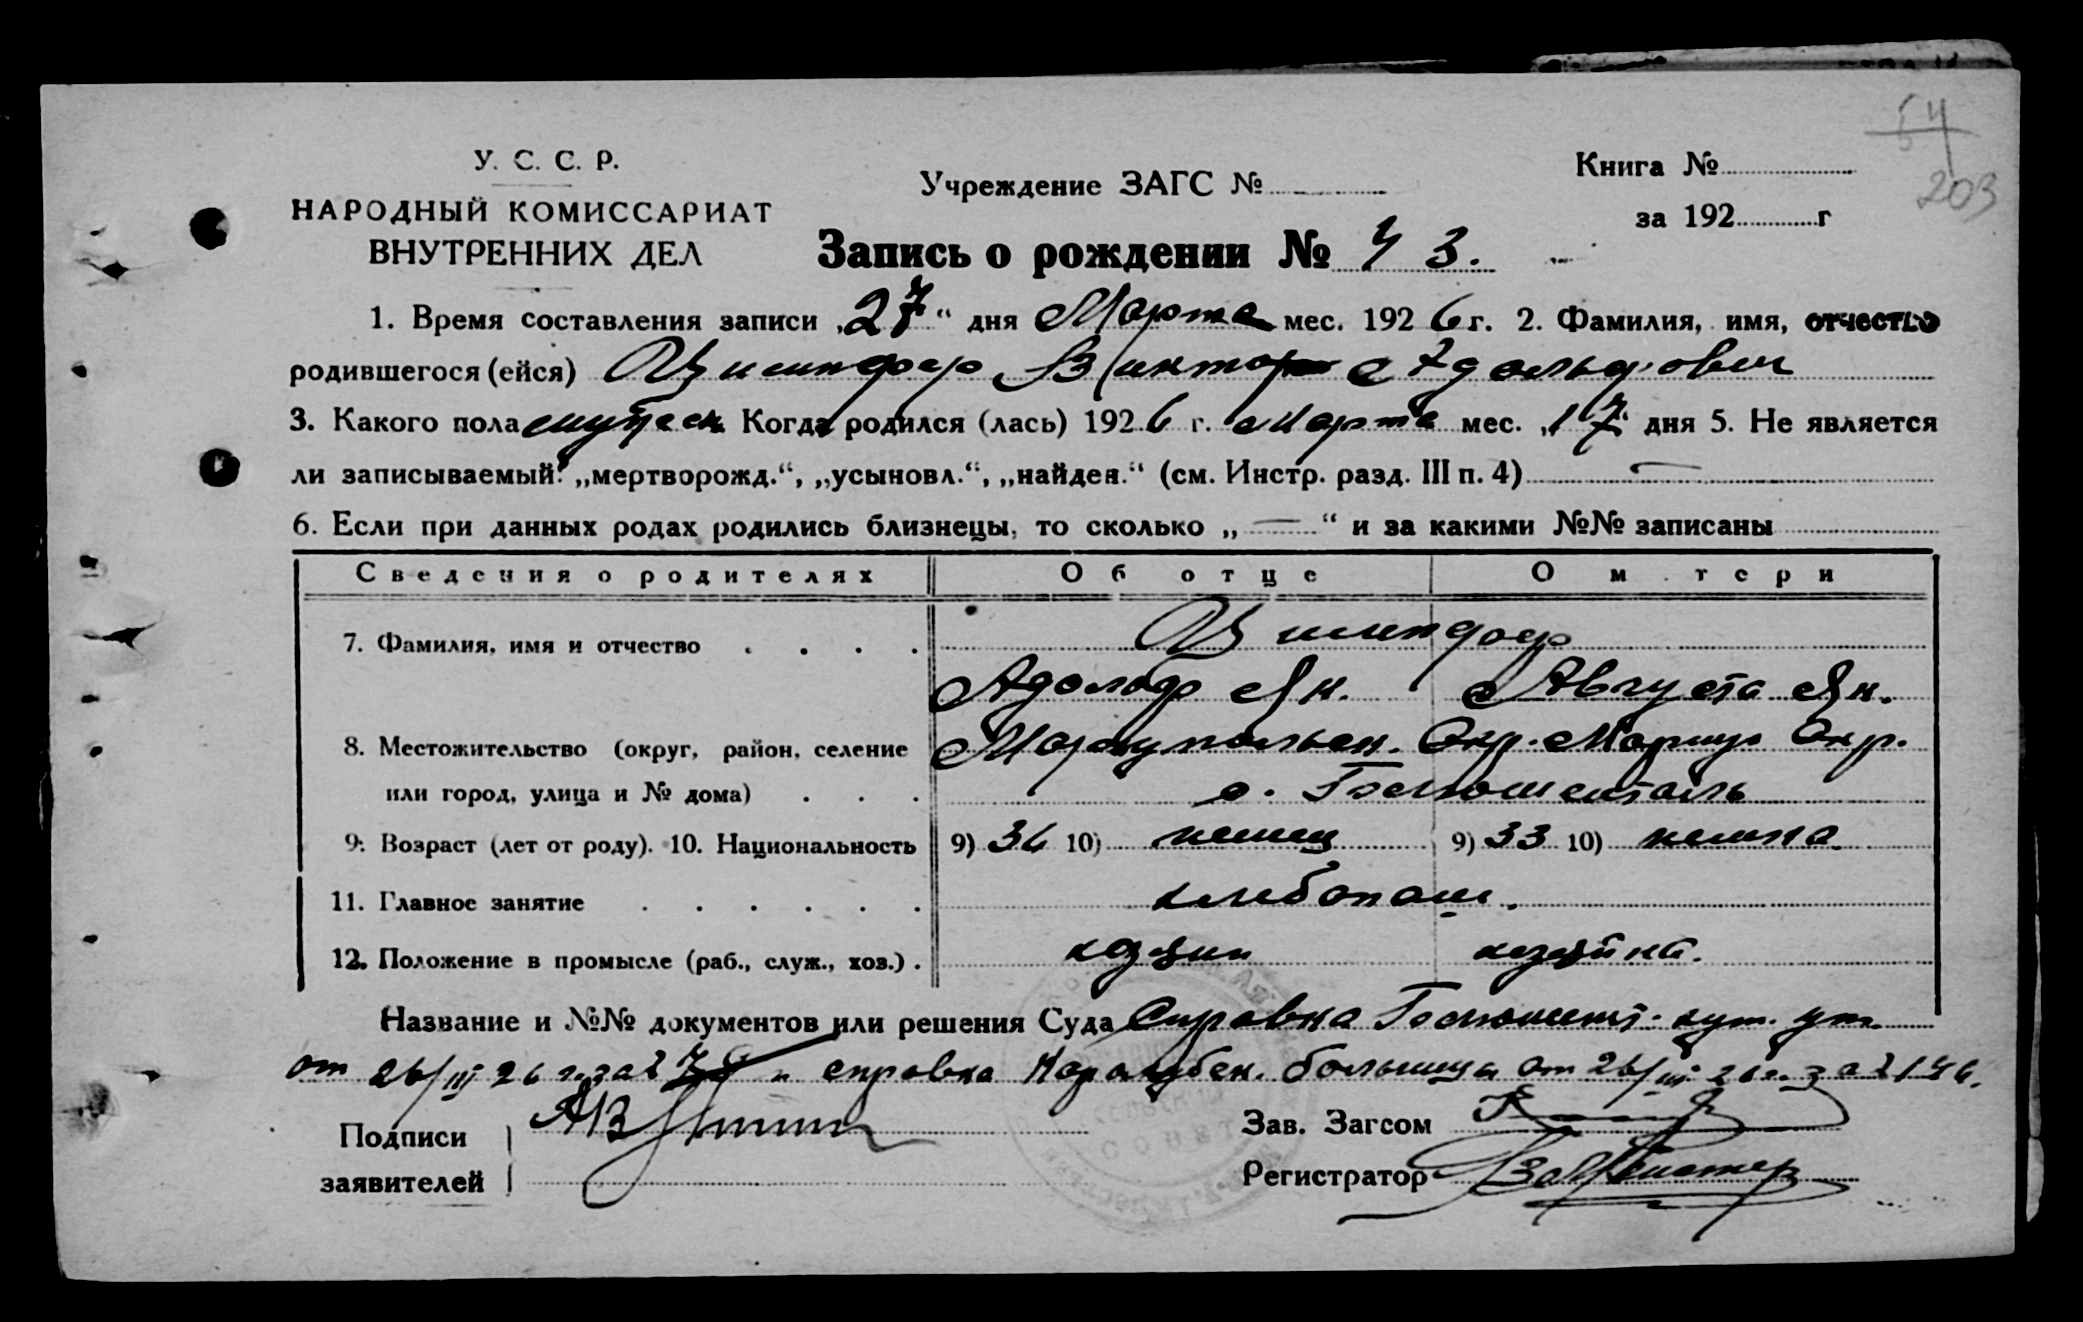 54
203
У. С. С. Р.
НАРОДНЫЙ КОМИССАРИАТ
ВНУТРЕННИХ ДЕЛ
Учреждение ЗАГС №
Книга №
за 192 г
Запись о рождении № 43.
1. Время составления записи „27“ дня Марта мес. 1926 г. 2. Фамилия, имя, отчество
родившегося (ейся) Виктор Адольфович
3. Какого пола мужеск. Когда родился (лась) 1926 г. Марта мес. „17“ дня 5. Не является
ли записываемый: „мертворожд.“, „усыновл.“, „найден.“ (см. Инстр. разд. III п. 4) —
6. Если при данных родах родились близнецы, то сколько „—“ и за какими №№ записаны
Сведения о родителях Об отце О м тери
7. Фамилия, имя и отчество
Адольф Як. Августа Як.
8. Местожительство (округ, район, селение Мариупольск. Окр. Мариуп. Окр.
или город, улица и № дома)
9. Возраст (лет от роду). 10. Национальность 9) 36 10) немец 9) 33 10) немка
11. Главное занятие хлебопаш.
12. Положение в промысле (раб., служ., хоз.) хозяин хозяйка.
Название и №№ документов или решения Суда Справка
от 26/III 26 г. за № и справка больницы от 26/III 26 г. за №
Подписи
заявителей
Зав. Загсом
Регистратор